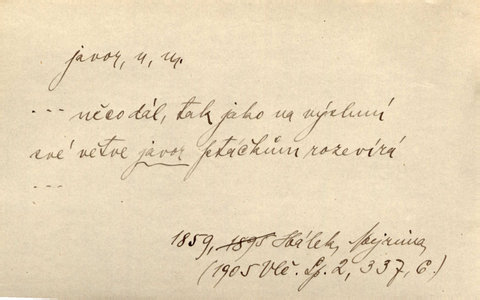 javor, u, m.
--- něco dál, tak jako na výsluní
své větve javor ptáčkům rozevírá
---
1859, 1895 Hálek, Mejrima,
(1905 Vlč. Sp. 2, 337, C.)